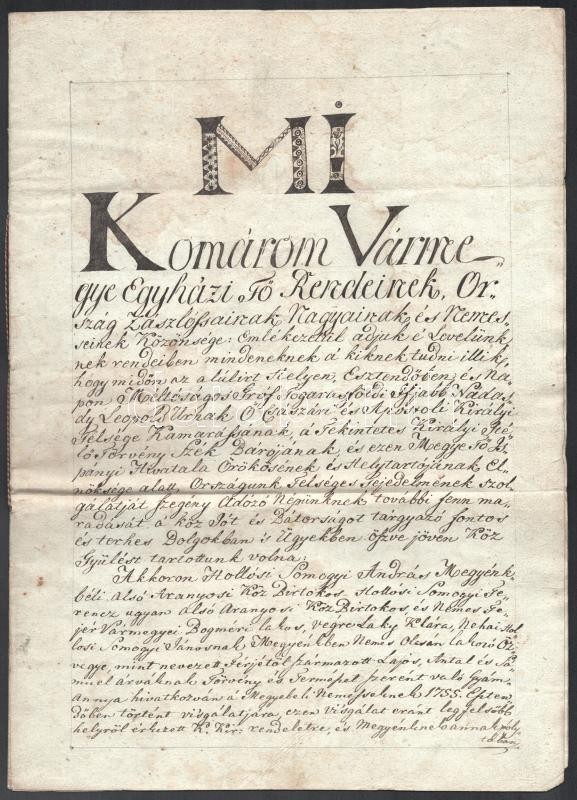 Mi
Komárom Várme-
gye Egyházi Fő Rendeinek, Or-
szág Zászlóssainak Nagyainak és Neme-
seinek Közönsége: Emlékezetűl adjuk é Levelünk-
nek rendeiben mindeneknek a kiknek tudni illik,
hogy midőn az alúlirt Helyen, Esztendőben és Na-
pon Méltóságos Gróf Fogarasföldi Ifjabb Nádas-
dy Leopold Urnak Ő Császári és Apostoli Királyi
Felsége Kamarássának, a Tekintetes Királyi Ité-
lő Törvény Szék Bárójának, és ezen Megye Fő Is-
pányi Hivatala Örökösének és Helytartójának El-
nöksége alatt, Országunk Felséges Fejedelmének Szol-
gálatját szegény Adózó Népünknek további fenn ma-
radását a köz Jót és Bátorságot tárgyazó fontos
és terhes Dolgokban is Ügyekben öszve jövén Köz
Gyülést tartottunk volna:
Akkoron Hollósi Somogyi András Megyénk-
béli alsó Aranyosi Köz Birtokos Hollósi Somogyi Fe-
rencz ugyan alsó Aranyosi Köz Birtokos, és Nemes Fe-
jér Vármegyei Bogméri lakos, végre Laky Klára, Néhai Hol-
lósi Somogyi Jánosnak Megyénkben Nemes Ólcsán lakozó Öz-
vegye, mint nevezett Férjétől származott Lajos, Antal és Sá-
muel árváknak Törvény és Termeszet szerent való Gyám-
Annya hivatkozván a Megyebeli Nemeseknek 1755. Eszten-
dőben történt visgálatjára, ezen Visgálat eránt legfelsőbb
helyről érkezett K. Kir. rendeletre, és Megyénknek annak foly-
tában,